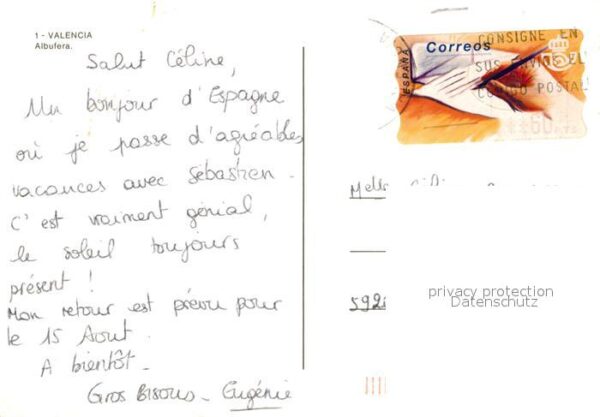 1 - VALENCIA
Albufera.
Salut Céline,
Un bonjour d'Espagne
où je passe d'agréables
vacances avec Sébastien.
C'est vraiment génial,
le soleil toujours
présent !
Mon retour est prévu pour
le 15 Août.
A bientôt.
Gros Bisous - Eugénie
Correos
ESPAÑA
CONSIGNE EN
SUS ENVIOS EL
CODIGO POSTAL
60
Melle
592
privacy protection
Datenschutz